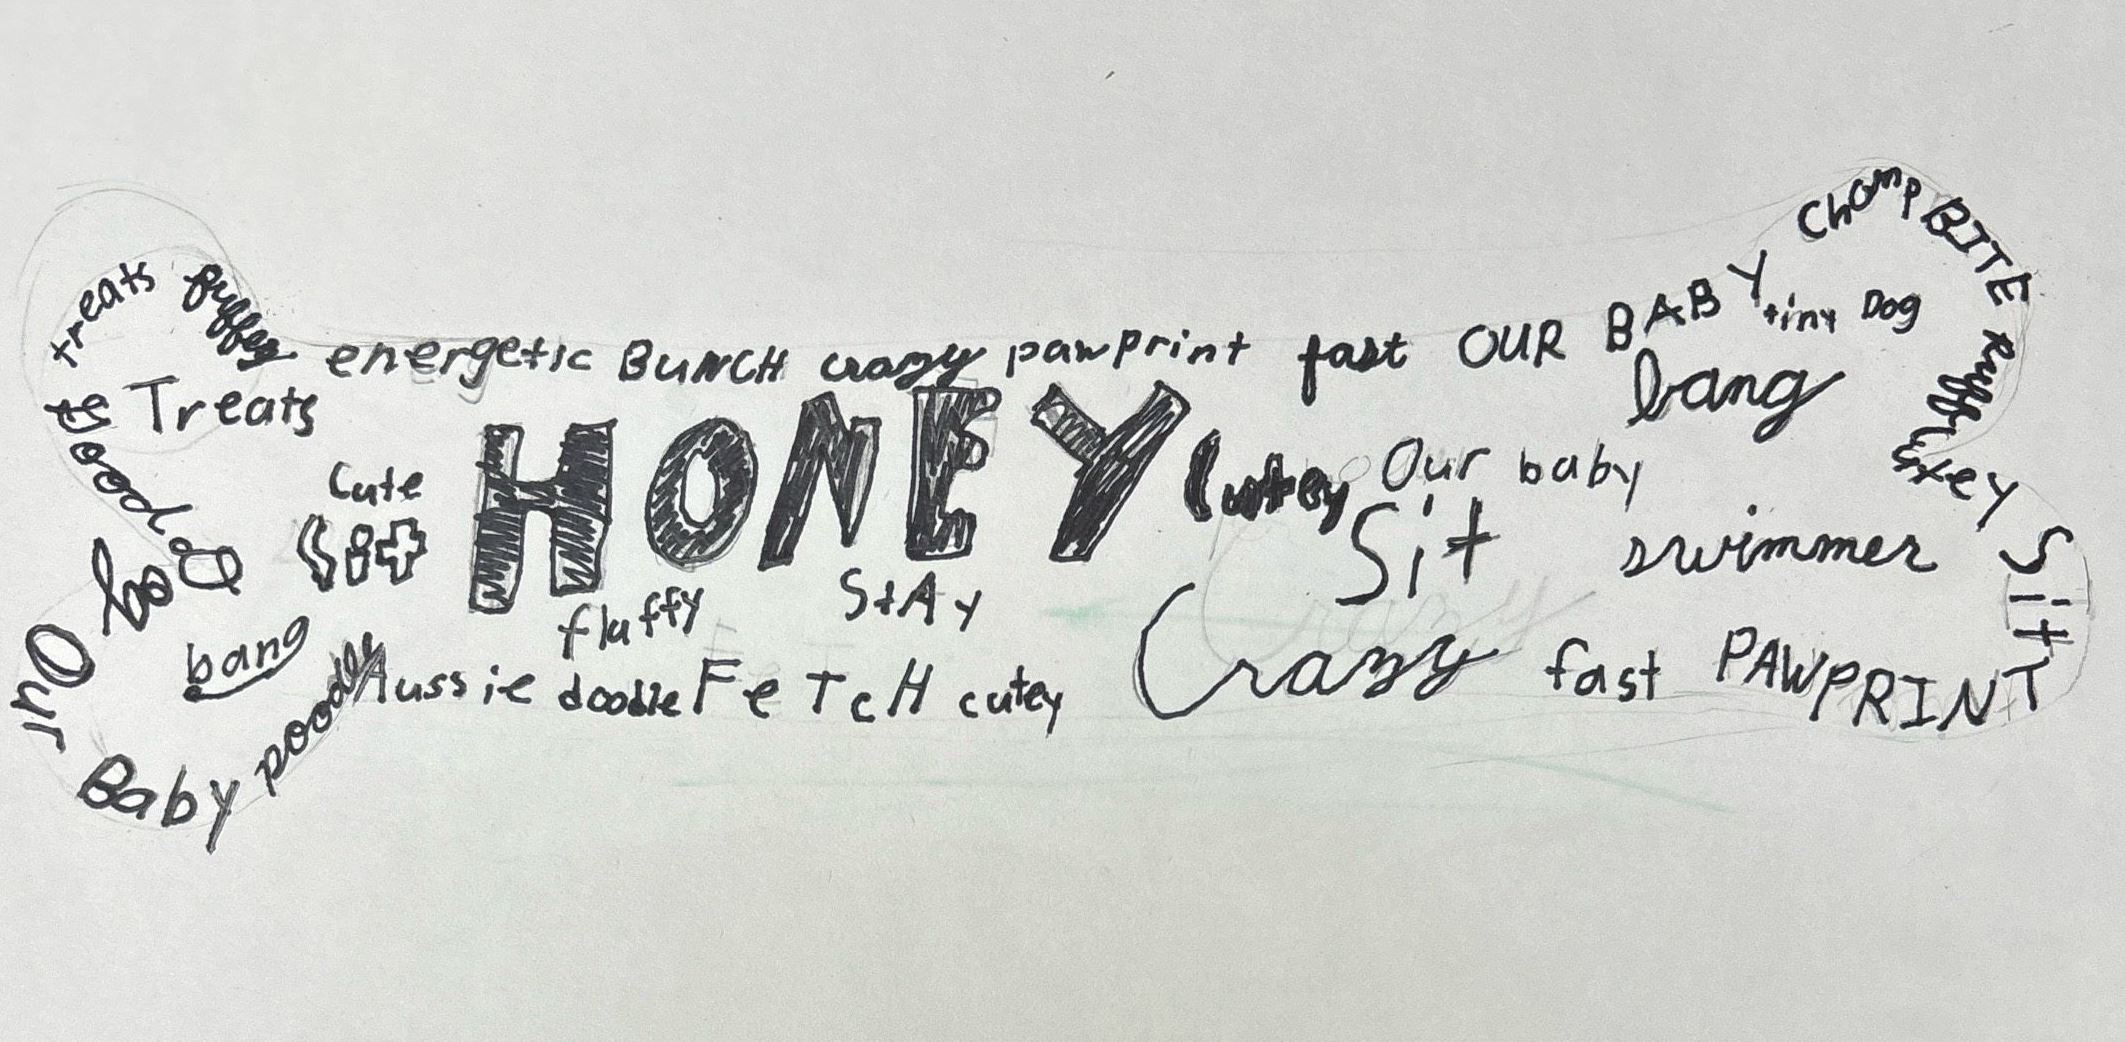 treats
energetic BUNCH crazy pawprint fast OUR BABY
Chomp BITE
tiny Dog
bang
Treats
Cutey Our baby
Cute
Sit
HONEY
Sit swimmer
Sit
fluffy StAy
bang
Our
Baby
poodle
Aussie doodle FeTcH cutey
Crazy fast PAWPRINT